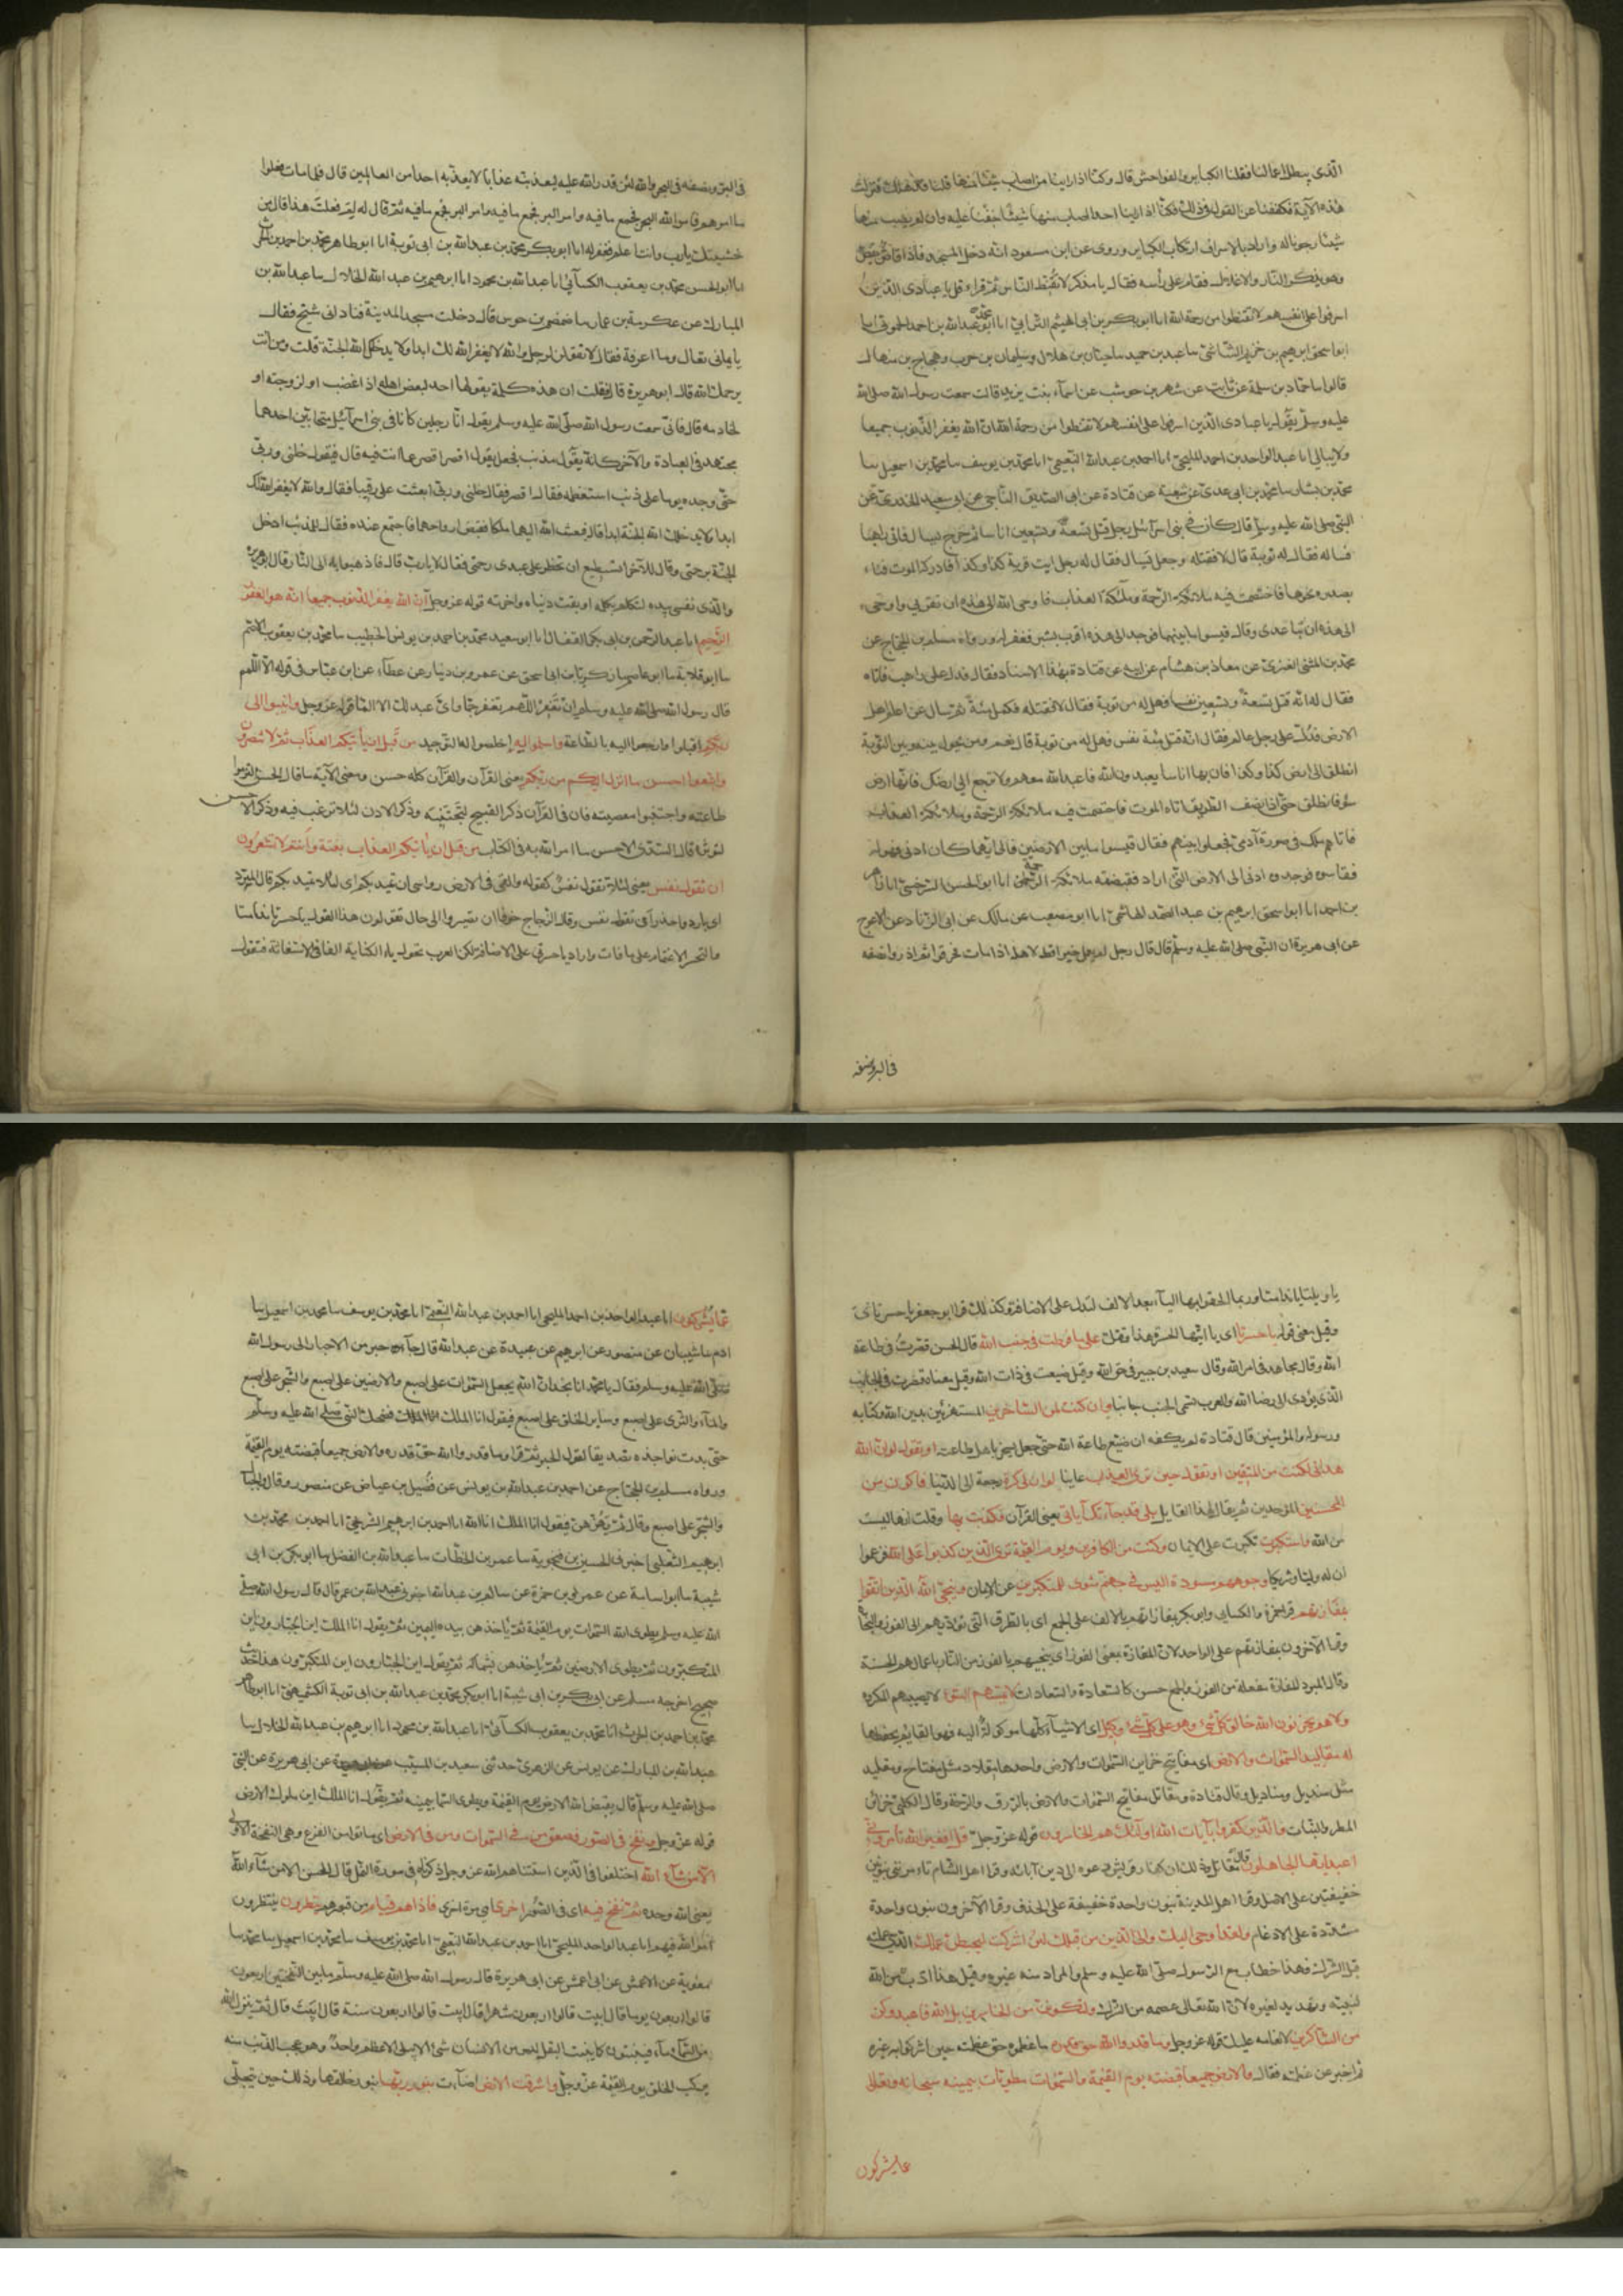 الذى يبطل اعمالنا فقلنا الكباير والفواحش قال وكنا اذا راينا من اصاب شيئا منها قلنا قد هلك فنزلت
هذه الآية فكففنا عن القول فى ذلك فكنا اذا راينا احدا اصاب منها شيئا خفنا عليه وان لم يصب منها
شيئا رجونا له واراد بالاسراف ارتكاب الكباير وروى عن ابن مسعود انه دخل المسجد فاذا قاص يقص
وهو يذكر النار والاغلال فقام على رأسه فقال يا مذكر لا تقنط الناس ثم قرا قل يا عبادى الذين
اسرفوا على انفسهم لا تقنطوا من رحمة الله انا ابو بكر بن ابى الهيثم الترابى انا ابو محمد عبد الله بن احمد الحموى انا
ابو اسحق ابرهيم بن خزيم الشاشى سا عبد بن حميد سا حبان بن هلال وسليمان بن حرب وحجاج بن منهال
قالوا سا حماد بن سلمة عن ثابت عن شهر بن حوشب عن اسماء بنت يزيد قالت سمعت رسول الله صلى الله
عليه وسلم يقول يا عبادى الذين اسرفوا على انفسهم لا تقنطوا من رحمة الله ان الله يغفر الذنوب جميعا
ولا يبالى انا عبد الواحد بن احمد المليحى انا احمد بن عبد الله النعيمى انا محمد بن يوسف سا محمد بن اسمعيل سا
محمد بن بشار سا محمد بن ابى عدى عن شعبة عن قتادة عن ابى الصديق الناجى عن ابى سعيد الخدرى عن
النبى صلى الله عليه وسلم قال كان فى بنى اسرائيل رجل قتل تسعة وتسعين انسانا ثم خرج يسال فاتى راهبا
فساله فقال له توبة قال لا فقتله وجعل يسال فقال له رجل ايت قرية كذا وكذا فادركه الموت فناء
بصدره نحوها فاختصمت فيه ملائكة الرحمة وملئكة العذاب فاوحى الله الى هذه ان تقربى واوحى
الى هذه ان تباعدى وقال قيسوا ما بينهما فوجد الى هذه اقرب بشبر فغفر له ورواه مسلم بن الحجاج عن
محمد بن المثنى العنزى عن معاذ بن هشام عن ابيه عن قتادة بهذا الاسناد فقال فدل على راهب فاتاه
فقال له انه قتل تسعة وتسعين نفسا فهل له من توبة فقال لا فقتله فكمل مئة ثم سال عن اعلم اهل
الارض فدل على رجل عالم فقال انه قتل مئة نفس فهل له من توبة قال نعم ومن يحول بينه وبين التوبة
انطلق الى ارض كذا وكذا فان بها اناسا يعبدون الله فاعبد الله معهم ولا ترجع الى ارضك فانها ارض
سوء فانطلق حتى اذا نصف الطريق اتاه الموت فاختصمت فيه ملائكة الرحمة وملائكة العذاب
فاتاهم ملك فى صورة آدمى فجعلوه بينهم فقال قيسوا ما بين الارضين فالى ايهما كان ادنى فهو له
فقاسوه فوجدوه ادنى الى الارض التى اراد فقبضته ملائكة الرحمة انا ابو الحسن السرخسى انا زاهر
بن احمد انا ابو اسحق ابرهيم بن عبد الصمد الهاشمى انا ابو مصعب عن مالك عن ابى الزناد عن الاعرج
عن ابى هريرة ان النبى صلى الله عليه وسلم قال قال رجل لم يعمل خيرا قط لاهله اذا مات فحرقوه ثم اذروا نصفه
فى البر ونصفه
فى البر ونصفه فى البحر والله لئن قدر الله عليه ليعذبنه عذابا لا يعذبه احدا من العالمين قال فلما مات فعلوا
ما امرهم فامر الله البحر فجمع ما فيه وامر البر فجمع ما فيه ثم قال له لم فعلت هذا قال من
خشيتك يا رب وانت اعلم فغفر له انا ابو بكر محمد بن عبد الله بن ابى توبة انا ابو طاهر محمد بن احمد بن الحرث
انا ابو الحسن محمد بن يعقوب الكسائى انا عبد الله بن محمود انا ابرهيم بن عبد الله الخلال سا عبد الله بن
المبارك عن عكرمة بن عمار سا ضمضم بن جوس قال دخلت مسجد المدينة فنادانى شيخ فقال
يا يمانى تعال وما اعرفه فقال لا تقولن لرجل والله لا يغفر الله لك ابدا ولا يدخلك الله الجنة قلت ومن انت
يرحمك الله قال ابو هريرة قال فقلت ان هذه كلمة يقولها احدنا لبعض اهله اذا غضب او لزوجته او
لخادمه قال فانى سمعت رسول الله صلى الله عليه وسلم يقول ان رجلين كانا فى بنى اسرائيل متحابين احدهما
مجتهد فى العبادة والآخر كانه يقول مذنب فجعل يقول اقصر اقصر عما انت فيه قال فيقول خلنى وربى
حتى وجده يوما على ذنب استعظمه فقال اقصر فقال خلنى وربى ابعثت على رقيبا فقال والله لا يغفر الله لك
ابدا ولا يدخلك الله الجنة ابدا قال فبعث الله اليهما ملكا فقبض ارواحهما فاجتمعا عنده فقال للمذنب ادخل
الجنة برحمتى وقال للآخر اتستطيع ان تحظر على عبدى رحمتى فقال لا يا رب قال فاذهبوا به الى النار قال ابو هريرة
والذى نفسى بيده لتكلم بكلمة اوبقت دنياه واخرته قوله عز وجل ان الله يغفر الذنوب جميعا انه هو الغفور
الرحيم انا عبد الرحمن بن ابى بكر القفال انا ابو سعيد محمد بن احمد بن يونس الخطيب سا محمد بن يعقوب الاصم
سا ابو قلابة سا ابو عاصم سا زكريا بن اسحق عن عمرو بن دينار عن عطاء عن ابن عباس فى قوله الا اللمم
قال رسول الله صلى الله عليه وسلم ان تغفر اللهم تغفر جما واى عبد لك لا الما قوله عز وجل وانيبوا الى
ربكم اقبلوا وارجعوا اليه بالطاعة واسلموا له اخلصوا له التوحيد من قبل ان يأتيكم العذاب ثم لا تنصرون
واتبعوا احسن ما انزل اليكم من ربكم يعنى القرآن والقرآن كله حسن ومعنى الآية ما قال الحسن التزموا
طاعته واجتنبوا معصيته فان فى القرآن ذكر القبيح لتجتنبه وذكر الادون لئلا ترغب فيه وذكر الاحسن
لتوثره قال السدى الاحسن ما امر الله به فى الكتاب من قبل ان ياتيكم العذاب بغتة وانتم لا تشعرون
ان تقول نفس يعنى لئلا تقول نفس كقوله والقى فى الارض رواسى ان تميد بكم اى لئلا تميد بكم قال المبرد
اى بادروا واحذروا ان تقول نفس وقال الزجاج خوف ان تصيروا الى حال تقولون هذا القول يا حسرتا يا ندامتا
والتحسر الاغتمام على ما فات واراد يا حسرتى على الاضافة لكن العرب تحول ياء الكناية الفا فى الاستغاثة فتقول
يا ويلتا يا ندامتا وربما الحقوا بها الياء بعد الالف لتدل على الاضافة وكذلك قرا ابو جعفر يا حسرتاى
وقيل معنى قوله يا حسرتا اى يا ايتها الحسرة هذا وقتك على ما فرطت فى جنب الله قال الحسن قصرت فى طاعة
الله وقال مجاهد فى امر الله وقال سعيد بن جبير فى حق الله وقيل ضيعت فى ذات الله وقيل معناه قصرت فى الجانب
الذى يؤدى الى رضا الله والعرب تسمى الجنب جانبا وان كنت لمن الساخرين المستهزئين بدين الله وكتابه
ورسوله والمؤمنين قال قتادة لم يكفه ان ضيع طاعة الله حتى جعل يسخر باهل طاعته او تقول لو ان الله
هدانى لكنت من المتقين او تقول حين ترى العذاب عيانا لو ان لى كرة رجعة الى الدنيا فاكون من
المحسنين الموحدين ثم يقال لهذا القايل بلى قد جآءتك آياتى يعنى القرآن فكذبت بها وقلت انها ليست
من الله واستكبرت تكبرت على الايمان وكنت من الكافرين ويوم القيمة ترى الذين كذبوا على الله فزعموا
ان له ولدا وشريكا وجوههم مسودة اليس فى جهنم مثوى للمتكبرين عن الايمان وينجى الله الذين اتقوا
بمفازتهم قرا حمزة والكسائى وابو بكر بمفازاتهم بالالف على الجمع اى بالطرق التى تؤديهم الى الفوز والنجاة
وقرا الآخرون بمفازتهم على الواحد لان المفازة بمعنى الفوز اى ينجيهم بالفوز من النار باعمالهم الحسنة
وقال المبرد المفازة مفعلة من الفوز والجمع حسن كالسعادة والسعادات لا يمسهم السوء لا يصيبهم المكروه
ولا هم يحزنون الله خالق كل شئ وهو على كل شئ وكيل اى الاشيآء كلها موكولة اليه فهو القايم بحفظها
له مقاليد السموات والارض اى مفاتيح خزاين السموات والارض واحدها مقلاد مثل مفتاح ومقليد
مثل منديل ومناديل وقال قتادة ومقاتل مفاتيح السموات والارض بالرزق والرحمة وقال الكلبى خزائن
المطر والنبات والذين كفروا بآيات الله اولئك هم الخاسرون قوله عز وجل قل افغير الله تأمرونى
اعبد ايها الجاهلون قال مقاتل وذلك ان كفار قريش دعوه الى دين آبائه وقرا اهل الشام تامروننى بنونين
خفيفتين على الاصل وقرا اهل المدينة بنون واحدة خفيفة على الحذف وقرا الآخرون بنون واحدة
مشددة على الادغام ولقد اوحى اليك والى الذين من قبلك لئن اشركت ليحبطن عملك الذى عملته
قبل الشرك فهذا خطاب مع الرسول صلى الله عليه وسلم والمراد منه غيره وقيل هذا ادب من الله
لنبيه وتهديد لغيره لان الله تعالى عصمه من الشرك ولتكونن من الخاسرين بل الله فاعبد وكن
من الشاكرين لانعامه عليك قوله عز وجل وما قدروا الله حق قدره ما عظموه حق عظمته حين اشركوا به غيره
ثم اخبر عن عظمته فقال والارض جميعا قبضته يوم القيمة والسموات مطويات بيمينه سبحانه وتعالى
عما يشركون
عما يشركون انا عبد الواحد بن احمد المليحى انا احمد بن عبد الله النعيمى انا محمد بن يوسف سا محمد بن اسمعيل سا
ادم سا شيبان عن منصور عن ابرهيم عن عبيدة عن عبد الله قال جآء حبر من الاحبار الى رسول الله
صلى الله عليه وسلم فقال يا محمد انا نجد ان الله يجعل السموات على اصبع والارضين على اصبع والشجر على اصبع
والمآء والثرى على اصبع وساير الخلق على اصبع فيقول انا الملك انا الملك فضحك النبى صلى الله عليه وسلم
حتى بدت نواجذه تصديقا لقول الحبر ثم قرا وما قدروا الله حق قدره والارض جميعا قبضته يوم القيمة
ورواه مسلم بن الحجاج عن احمد بن عبد الله بن يونس عن فضيل بن عياض عن منصور وقال والجبال
والشجر على اصبع وقال ثم يهزهن فيقول انا الملك انا الله انا احمد بن ابرهيم الشريحى انا احمد بن محمد بن
ابرهيم الثعلبى اخبرنى الحسين بن فنجوية سا عمر بن الخطاب سا عبد الله بن الفضل سا ابو بكر بن ابى
شيبة سا ابو اسامة عن عمر بن حمزة عن سالم بن عبد الله اخبرنى عبد الله بن عمر قال قال رسول الله صلى
الله عليه وسلم يطوى الله السموات يوم القيمة ثم ياخذهن بيده اليمين ثم يقول انا الملك اين الجبارون اين
المتكبرون ثم يطوى الارضين ثم ياخذهن بشماله ثم يقول اين الجبارون اين المتكبرون هذا حديث
صحيح اخرجه مسلم عن ابى بكر بن ابى شيبة انا ابو بكر محمد بن عبد الله بن ابى توبة الكشميهنى انا ابو طاهر
محمد بن احمد بن الحرث انا محمد بن يعقوب الكسائى انا عبد الله بن محمود انا ابرهيم بن عبد الله الخلال سا
عبد الله بن المبارك عن يونس عن الزهرى حدثنى سعيد بن المسيب عن ابى هريرة عن النبى
صلى الله عليه وسلم قال يقبض الله الارض يوم القيمة ويطوى السما بيمينه ثم يقول انا الملك اين ملوك الارض
قوله عز وجل ونفخ فى الصور فصعق من فى السموات ومن فى الارض اى ماتوا من الفزع وهى النفخة الاولى
الا من شاء الله اختلفوا فى الذين استثناهم الله عز وجل ذكرناه فى سورة النمل قال الحسن الا من شاء الله
يعنى الله وحده ثم نفخ فيه اى فى الصور اخرى اى مرة اخرى فاذا هم قيام من قبورهم ينظرون ينتظرون
امر الله فيهم انا عبد الواحد المليحى انا احمد بن عبد الله النعيمى انا محمد بن يوسف سا محمد بن اسمعيل سا محمد سا
معوية عن الاعمش عن ابى هريرة قال رسول الله صلى الله عليه وسلم ما بين النفختين اربعون
قالوا اربعون يوما قال ابيت قالوا اربعون شهرا قال ابيت قالوا اربعون سنة قال ابيت قال ثم ينزل الله
من السمآء مآء فينبتون كما ينبت البقل ليس من الانسان شئ الا يبلى الا عظم واحد وهو عجب الذنب منه
يركب الخلق يوم القيمة عز وجل واشرقت الارض اضآءت بنور ربها بنور خالقها وذلك حين يتجلى